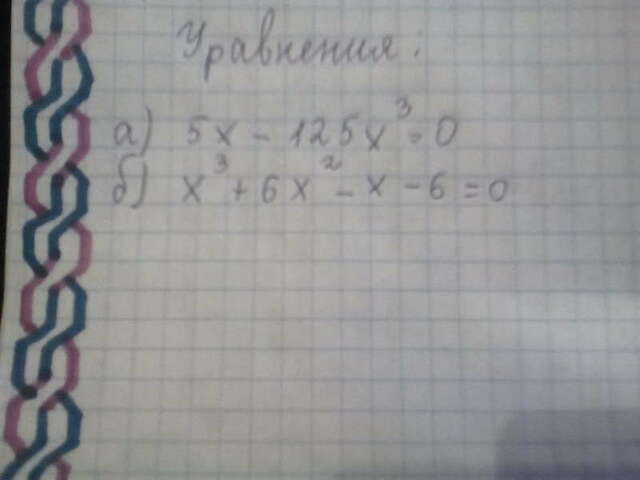 Уравнения:
а) 5x - 125x³ = 0
б) x³ + 6x² - x - 6 = 0